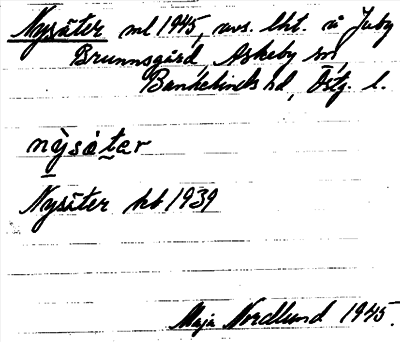 Nysäter ml 1945, avs. lht. å Juby
Brunnsgård, Askeby sn
Bankekinds hd, Östg. l.
nỳsȧ̀ter
Nysäter hb 1939
Maja Nordlund 1945.